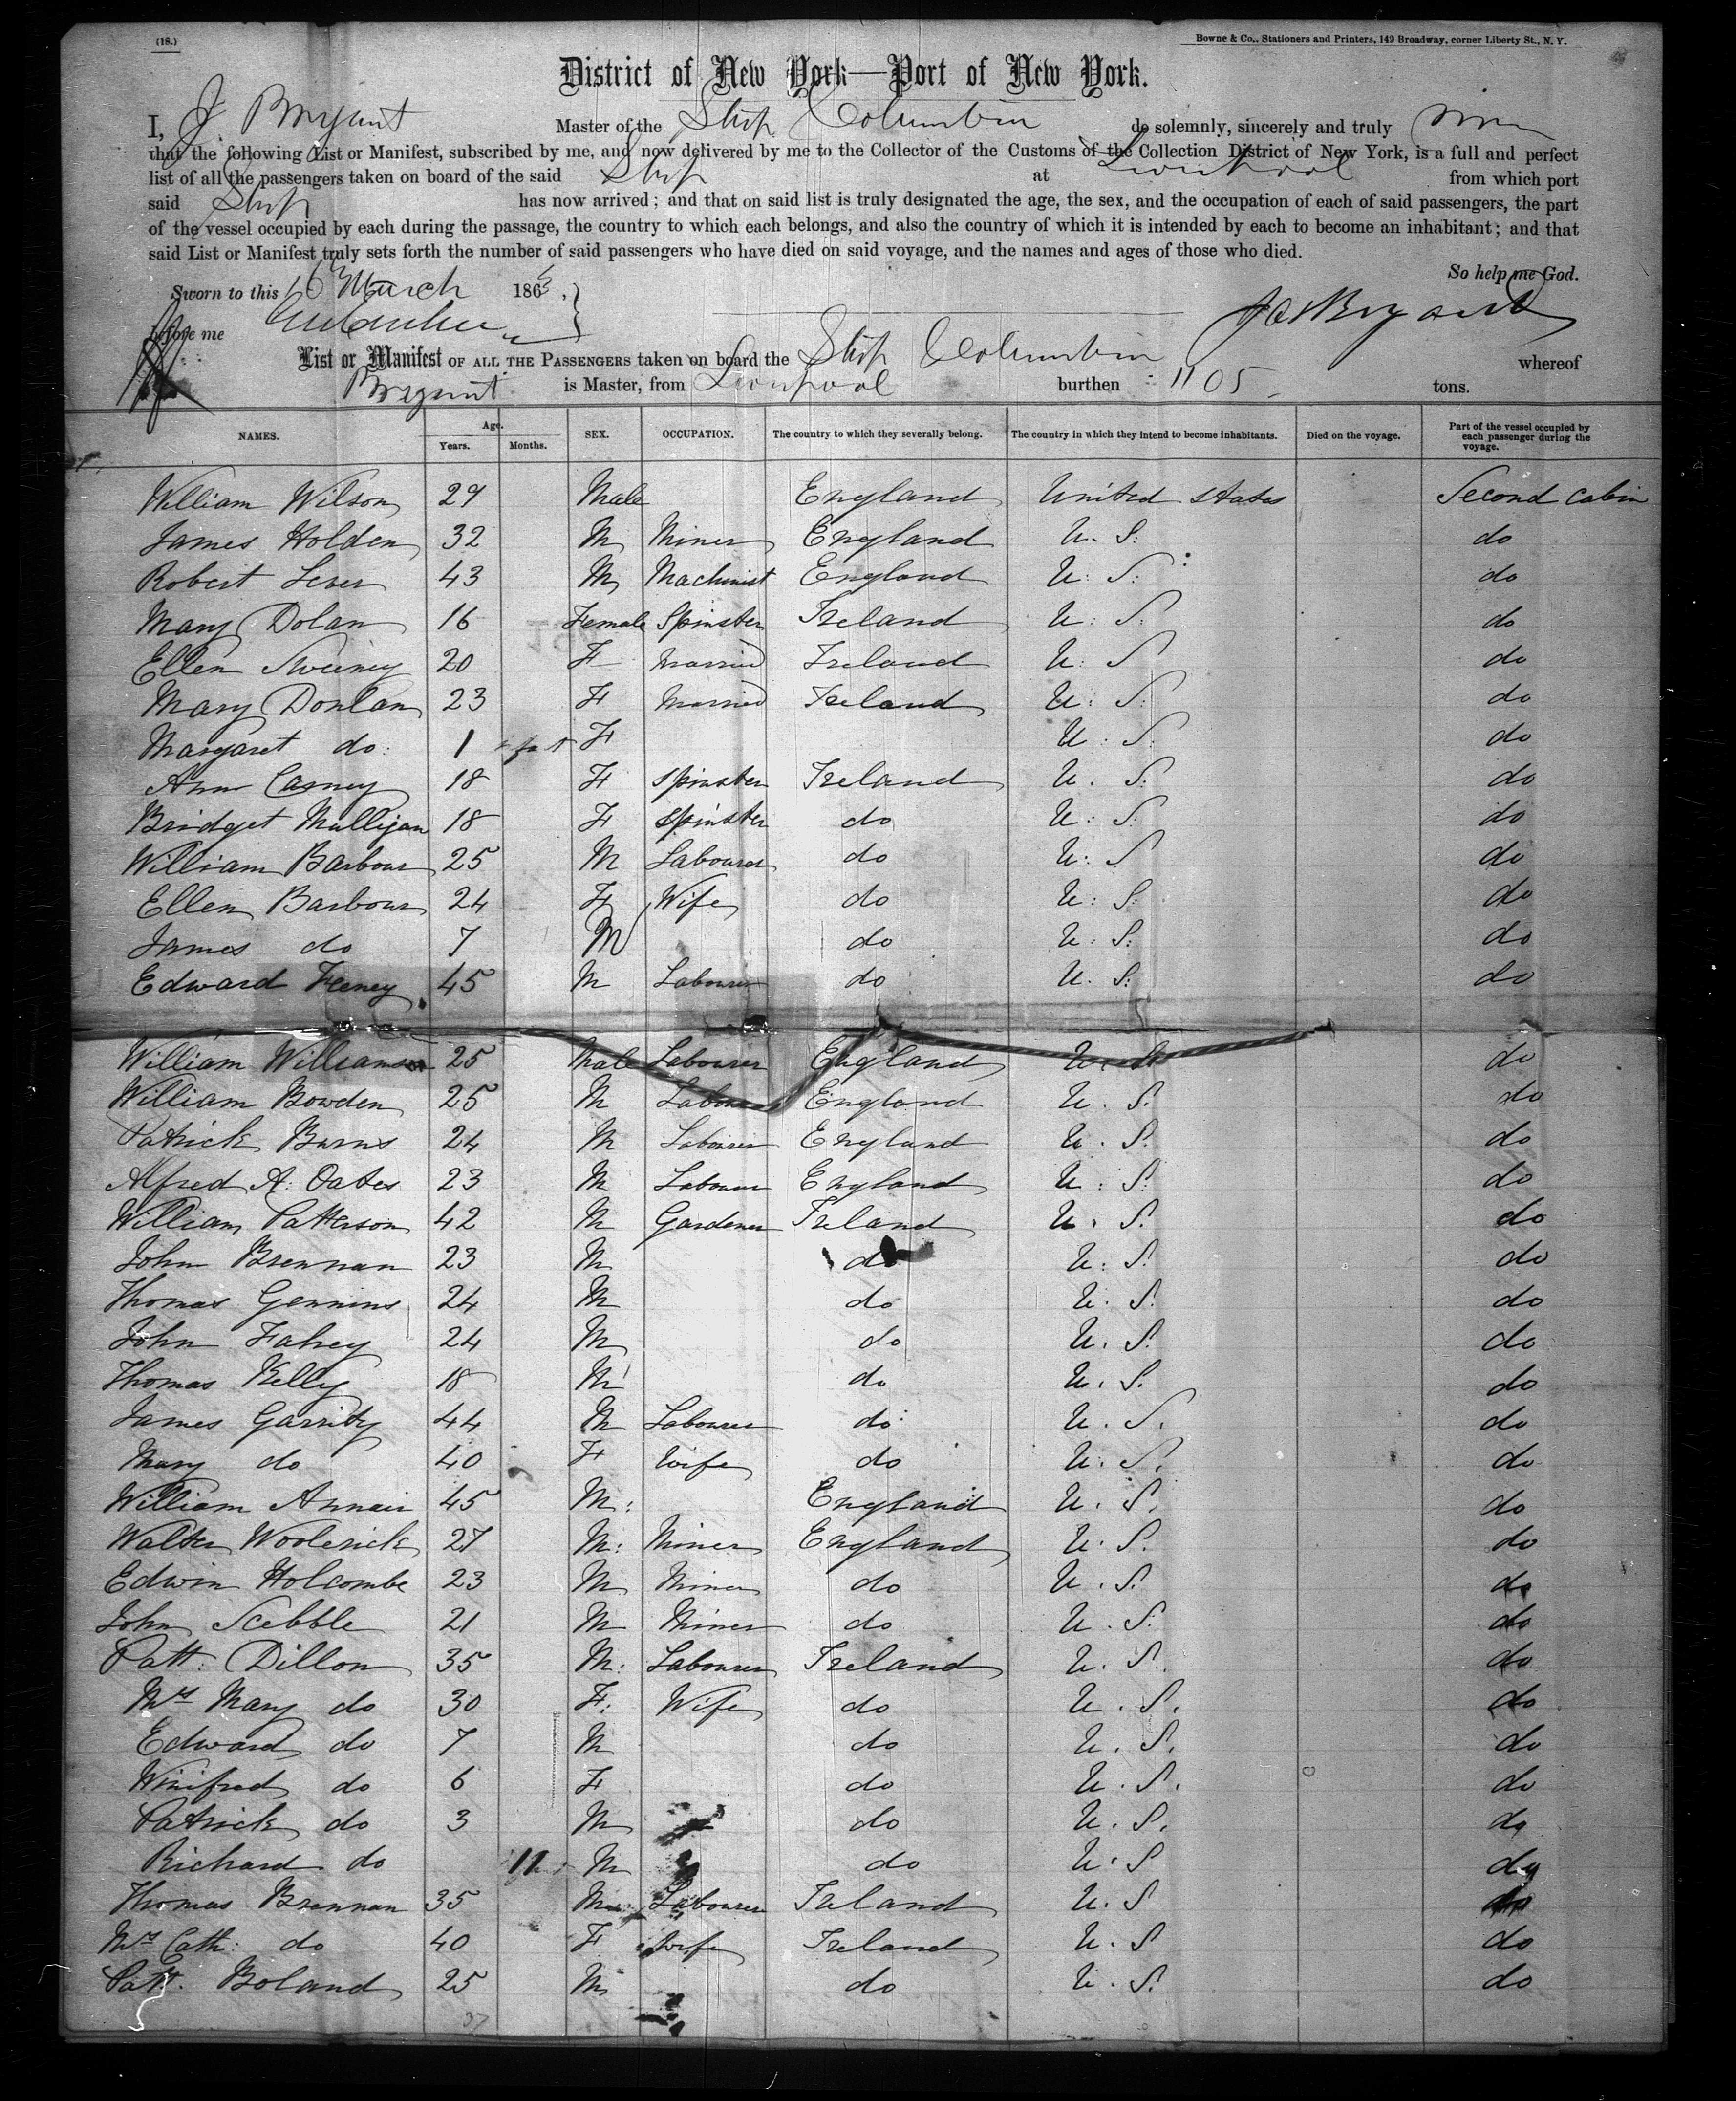 (18.)
Bowne & Co., Stationers and Printers, 149 Broadway, corner Liberty St., N. Y.
District of New York—Port of New York.
I, J. Bryant Master of the Ship Columbia do solemnly, sincerely and truly
that the following List or Manifest, subscribed by me, and now delivered by me to the Collector of the Customs of the Collection District of New York, is a full and perfect
list of all the passengers taken on board of the said Ship at Liverpool from which port
said Ship has now arrived; and that on said list is truly designated the age, the sex, and the occupation of each of said passengers, the part
of the vessel occupied by each during the passage, the country to which each belongs, and also the country of which it is intended by each to become an inhabitant; and that
said List or Manifest truly sets forth the number of said passengers who have died on said voyage, and the names and ages of those who died.
So help me God.
Sworn to this 16 March 1863,
before me
Bryant
List or Manifest OF ALL THE PASSENGERS taken on board the Ship Columbia whereof
Bryant is Master, from Liverpool burthen 1105 tons.
NAMES. Age. Years. Months. SEX. OCCUPATION. The country to which they severally belong. The country in which they intend to become inhabitants. Died on the voyage. Part of the vessel occupied by each passenger during the voyage.
William Wilson 29 Male England United States Second Cabin
James Holden 32 M Miner England U. S. do
Robert Lever 43 M Machinist England U. S. do
Mary Dolan 16 Female Spinster Ireland U. S. do
Ellen Sweeney 20 F Married Ireland U. S. do
Mary Donlan 23 F Married Ireland U. S. do
Margaret do 1 F U. S. do
Ann Carney 18 F Spinster Ireland U. S. do
Bridget Mulligan 18 F Spinster do U. S. do
William Barbour 25 M Labourer do U. S. do
Ellen Barbour 24 F Wife do U. S. do
James do 7 M do U. S. do
Edward Feeney 45 M Labourer do U. S. do
William Williamson 25 Male Labourer England U. S. do
William Bowden 25 M Labourer England U. S. do
Patrick Burns 24 M Labourer England U. S. do
Alfred A. Oates 23 M Labourer England U. S. do
William Patterson 42 M Gardener Ireland U. S. do
John Brennan 23 M do U. S. do
Thomas Gennins 24 M do U. S. do
John Fahey 24 M do U. S. do
Thomas Kelly 18 M do U. S. do
James Garrity 44 M Labourer do U. S. do
Mary do 40 F Wife do U. S. do
William Annair 45 M: England U. S. do
Walter Woolerick 27 M: Miner England U. S. do
Edwin Holcombe 23 M Miner do U. S. do
John Scebble 21 M Miner do U. S. do
Patt: Dillon 35 M: Labourer Ireland U. S. do
Mrs Mary do 30 F: Wife do U. S. do
Edward do 7 M do U. S. do
Winifred do 6 F do U. S. do
Patrick do 3 M do U. S. do
Richard do 11 M do U. S do
Thomas Brennan 35 M Labourer Ireland U. S do
Mrs Cath: do 40 F Wife Ireland U. S do
Patt. Boland 25 M do U. S. do
37